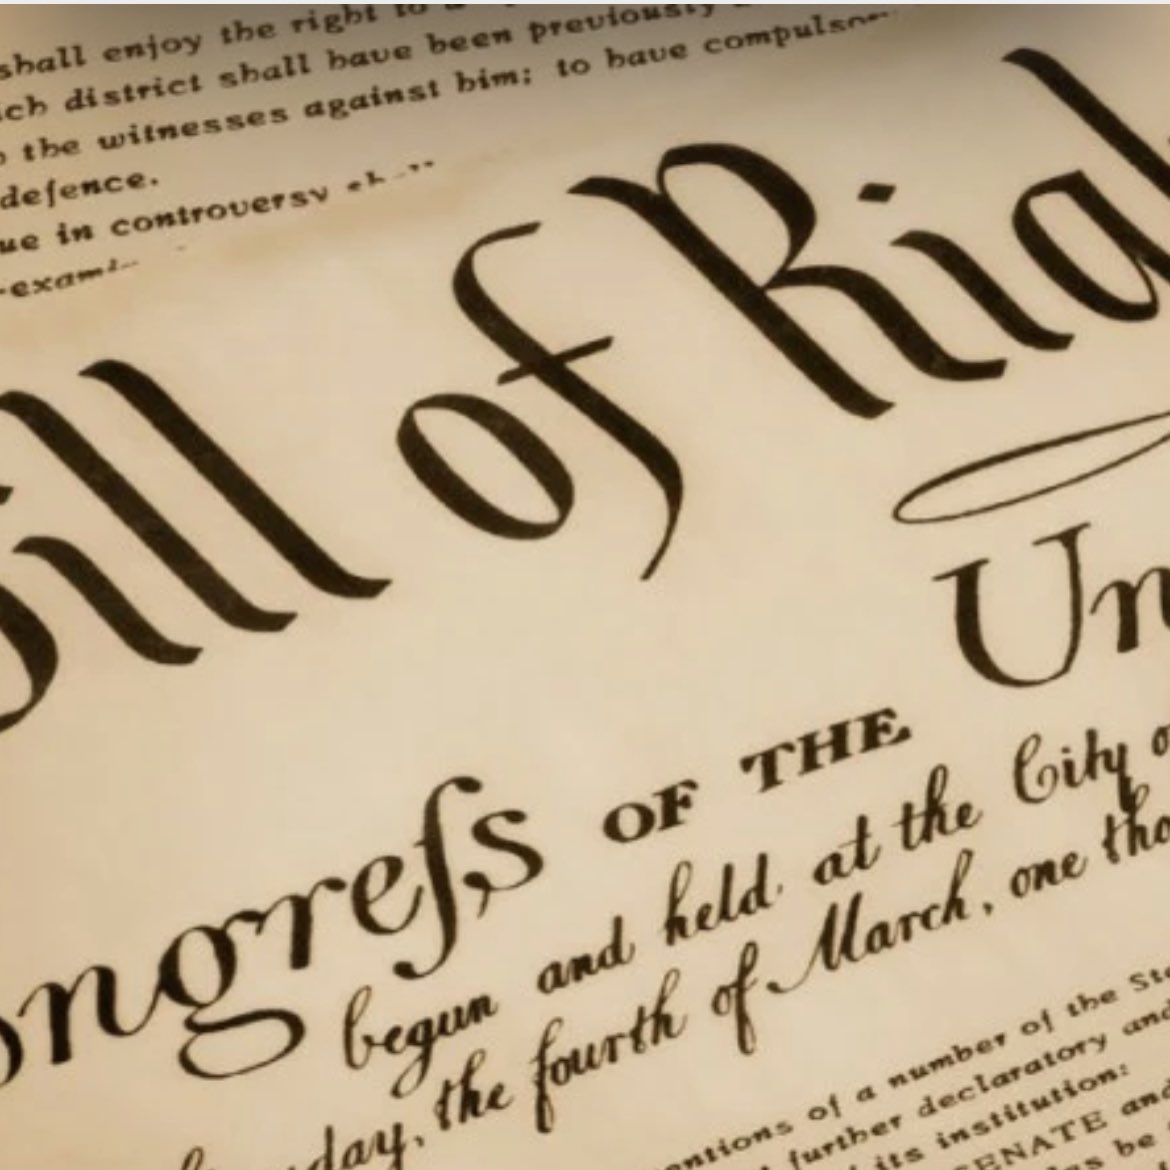 shall enjoy the right to a
ich district shall have been previously
the witnesses against him; to have compulsor
defence.
ue in controversy sh
-exami
ill of Rig
Un
ongreſs OF THE
begun and held at the City o
day, the fourth of March, one tho
entions of a number of the Sta
further declaratory and
its institution:
ENATE and
be